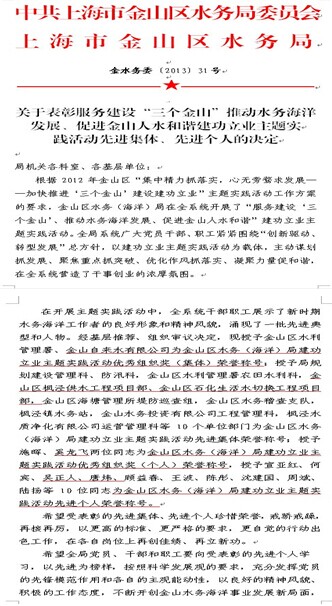 中共上海市金山区水务局委员会
上海市金山区水务局
金水务委（2013）31号
关于表彰服务建设“三个金山”推动水务海洋
发展、促进金山人水和谐建功立业主题实
践活动先进集体、先进个人的决定
局机关各科室、各基层单位：
根据2012年金山区“集中精力抓落实，心无旁骛求发展—
—加快推进‘三个金山’建设建功立业”主题实践活动工作方案
的要求，金山区水务（海洋）局在全系统开展了“服务建设‘三
个金山’、推动水务海洋发展、促进金山人水和谐”建功立业主
题实践活动。全局系统广大党员干部、职工紧紧围绕“创新驱动、
转型发展”总方针，以建功立业主题实践活动为载体，主动谋划
抓发展、聚焦重点抓突破、优化作风抓落实、凝聚力量促和谐，
在全系统营造了干事创业的浓厚氛围。
在开展主题实践活动中，全系统干部职工展示了新时期
水务海洋工作者的良好形象和精神风貌，涌现了一批先进典
型和人物。经基层推荐、组织审议决定，现授予金山区水利
管理署、金山自来水有限公司为金山区水务（海洋）局建功
立业主题实践活动优秀组织奖（集体）荣誉称号；授予局规
划建设管理科、防汛科，金山区水利管理署农田水利科，金山
区枫泾供水工程项目部、金山区石化生活水切换工程项目
部，金山区海塘管理所堤防巡查组，金山区水务稽查支队，
枫泾镇水务站，金山水务投资有限公司工程管理科，枫泾水
质净化有限公司运营管理科等10个单位部门为金山区水务
（海洋）局建功立业主题实践活动先进集体荣誉称号；授予
施晖、奚光飞两位同志为金山区水务（海洋）局建功立业主
题实践活动优秀组织奖（个人）荣誉称号，授予宣亚红、何
宾、吴正人、唐炜、顾益春、王波、陈彤、沈建国、周斌、
陆扬等10位同志为金山区水务（海洋）局建功立业主题实
践活动先进个人荣誉称号。
希望受表彰的先进集体、先进个人珍惜荣誉，戒骄戒躁，
再接再厉，以更高的标准、更严格的要求，更自觉的行动出
色工作，在各自岗位上再创佳绩、再立新功。
希望全局党员、干部和职工要向受表彰的先进个人学
习，以先进为榜样，按照科学发展观的要求，充分发挥党员
的先锋模范作用和各自的主观能动性，以良好的精神风貌、
积极的工作态度，不断开创金山水务海洋事业发展新局面，